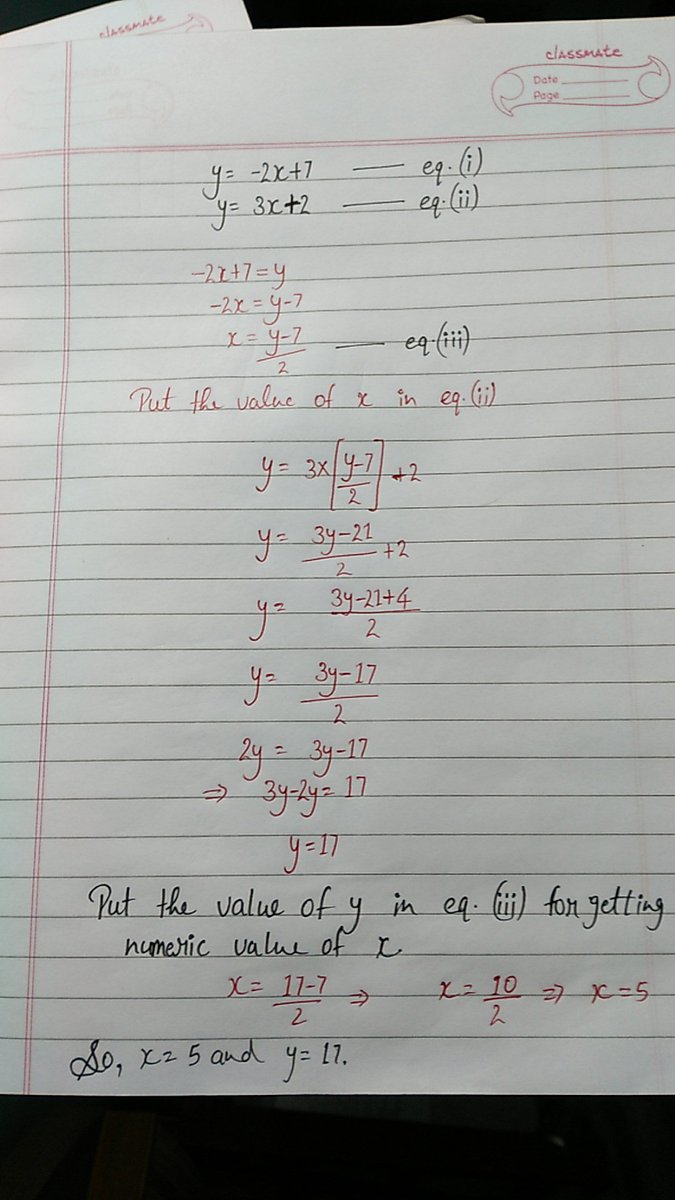 classmate
classmate
Date
Page
y= -2x+7 —— eq.(i)
y= 3x+2 —— eq.(ii)
-2x+7=y
-2x=y-7
x= y-7/2 —— eq.(iii)
Put the value of x in eq.(ii)
y= 3×[y-7/2]+2
y= 3y-21/2 +2
y= 3y-21+4/2
y= 3y-17/2
2y= 3y-17
⇒ 3y-2y= 17
y=17
Put the value of y in eq. (iii) for getting
numeric value of x
x= 17-7/2 ⇒ x= 10/2 ⇒ x=5
So, x= 5 and y= 17.